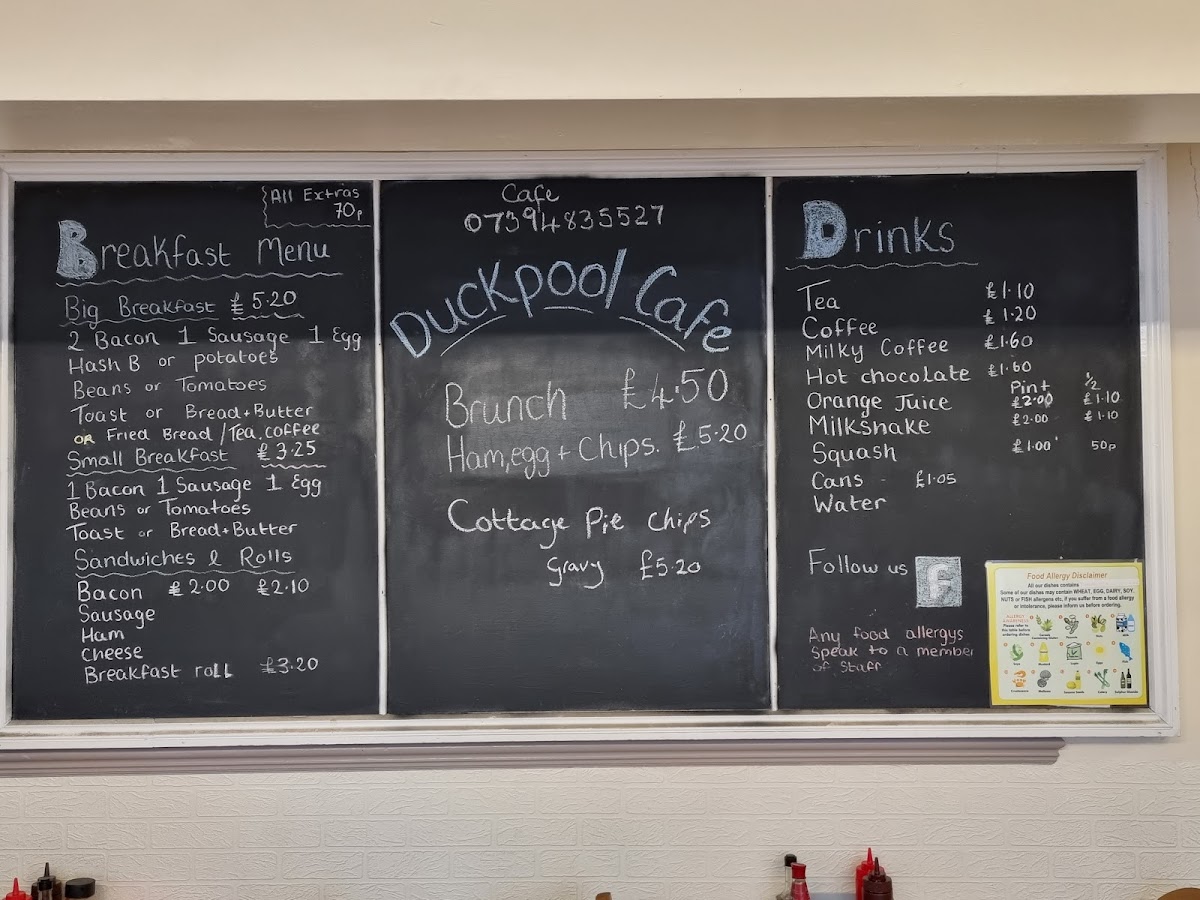 All Extras
70p
Breakfast Menu
Big Breakfast £5.20
2 Bacon 1 Sausage 1 Egg
Hash B or potatoes
Beans or Tomatoes
Toast or Bread+Butter
OR Fried Bread/Tea.coffee
Small Breakfast £3.25
1 Bacon 1 Sausage 1 Egg
Beans or Tomatoes
Toast or Bread+Butter
Sandwiches & Rolls
Bacon £2.00 £2.10
Sausage
Ham
Cheese
Breakfast roll £3.20
Cafe
07394835527
Duckpool Cafe
Brunch £4.50
Ham,egg + Chips. £5.20
Cottage Pie chips
gravy £5.20
Drinks
Tea £1.10
Coffee £1.20
Milky Coffee £1.60
Hot chocolate £1.60
Pint 1/2
Orange Juice £2.00 £1.10
Milkshake £2.00 £1.10
Squash £1.00 50p
Cans - £1.05
Water
Follow us F
Any food allergys
Speak to a member
of Staff
Food Allergy Disclaimer
All our dishes contains
Some of our dishes may contain WHEAT, EGG, DAIRY, SOY,
NUTS or FISH allergens etc, if you suffer from a food allergy
or intolerance, please inform us before ordering.
ALLERGY
AWARENESS
Please refer to
this table before
ordering dishes